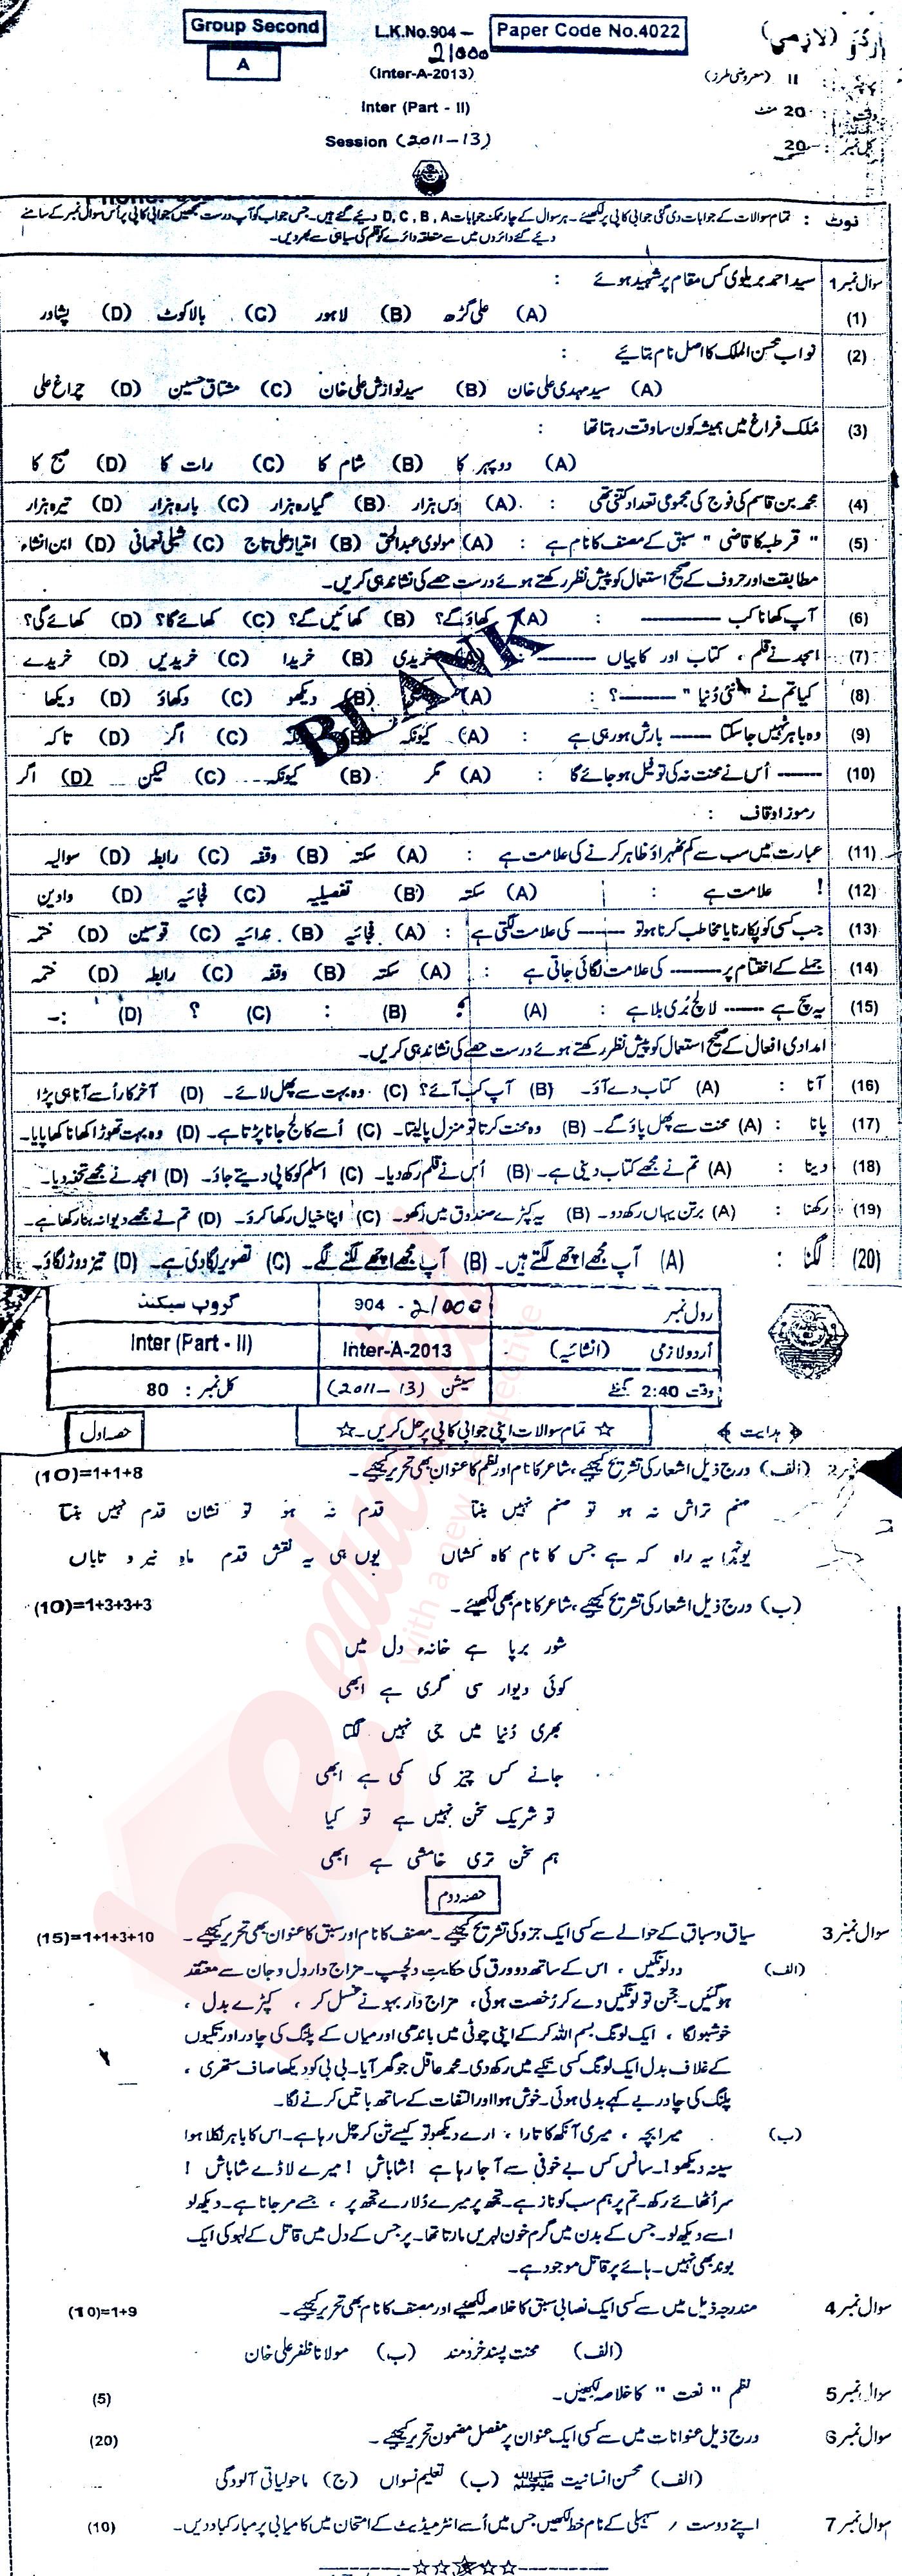 Group Second
A
L.K.No.904 – 21000
Paper Code No.4022
(Inter-A-2013)
Inter (Part - II)
Session (2011-13)
اردو (لازمی)
پرچہ : II (معروضی طرز)
وقت : 20 منٹ
کل نمبر : 20
نوٹ : تمام سوالات کے جوابات دی گئی جوابی کاپی پر لکھیئے۔ ہر سوال کے چار ممکنہ جوابات D, C, B, A دیئے گئے ہیں۔ جس جواب کو آپ درست سمجھیں جوابی کاپی پر اُس سوال نمبر کے سامنے
دیئے گئے دائروں میں سے متعلقہ دائرے کو قلم کی سیاہی سے بھر دیں۔
سوال نمبر 1 سید احمد بریلوی کس مقام پر شہید ہوئے :
(1) (A) علی گڑھ (B) لاہور (C) بالاکوٹ (D) پشاور
(2) نواب محسن الملک کا اصل نام بتائیے :
(A) سید مہدی علی خان (B) سید نوازش علی خان (C) مشتاق حسین (D) چراغ علی
(3) مُلک فراغ میں ہمیشہ کون سا وقت رہتا تھا :
(A) دوپہر کا (B) شام کا (C) رات کا (D) صبح کا
(4) محمد بن قاسم کی فوج کی مجموعی تعداد کتنی تھی : (A) دس ہزار (B) گیارہ ہزار (C) بارہ ہزار (D) تیرہ ہزار
(5) " قرطبہ کا قاضی " سبق کے مصنف کا نام ہے : (A) مولوی عبدالحق (B) امتیاز علی تاج (C) شبلی نعمانی (D) ابن انشاء
مطابقت اور حروف کے صحیح استعمال کو پیش نظر رکھتے ہوئے درست حصے کی نشاندہی کریں۔
(6) آپ کھانا کب ------- : (A) کھاؤ گے؟ (B) کھائیں گے؟ (C) کھائے گا؟ (D) کھائے گی؟
(7) امجد نے قلم ، کتاب اور کاپیاں ------- : (A) خریدی (B) خریدا (C) خریدیں (D) خریدے
(8) کیا تم نے " نئی دُنیا " -------؟ : (A) (B) دیکھو (C) دکھاؤ (D) دیکھا
(9) وہ باہر نہیں جا سکتا ------ بارش ہو رہی ہے : (A) کیونکہ (B) (C) اگر (D) تاکہ
(10) ------ اُس نے محنت نہ کی تو فیل ہو جائے گا : (A) مگر (B) کیونکہ (C) لیکن (D) اگر
رموز اوقاف :
(11) عبارت میں سب سے کم ٹھہراؤ ظاہر کرنے کی علامت ہے : (A) سکتہ (B) وقفہ (C) رابطہ (D) سوالیہ
(12) ! علامت ہے : (A) سکتہ (B) تفصیلیہ (C) فجائیہ (D) واوین
(13) جب کسی کو پکارنا یا مخاطب کرنا ہو تو ------ کی علامت لگتی ہے : (A) فجائیہ (B) ندائیہ (C) قوسین (D) ختمہ
(14) جملے کے اختتام پر ------ کی علامت لگائی جاتی ہے : (A) سکتہ (B) وقفہ (C) رابطہ (D) ختمہ
(15) یہ سچ ہے ------ لالچ بُری بلا ہے : (A) ؛ (B) : (C) ؟ (D) :۔
امدادی افعال کے صحیح استعمال کو پیش نظر رکھتے ہوئے درست حصے کی نشاندہی کریں۔
(16) آنا : (A) کتاب دے آؤ۔ (B) آپ کب آئے؟ (C) وہ بہت سے پھل لائے۔ (D) آخر کار اُسے آنا ہی پڑا
(17) پانا : (A) محنت سے پھل پاؤ گے۔ (B) وہ محنت کرتا تو منزل پا لیتا۔ (C) اُسے کالج جانا پڑتا ہے۔ (D) وہ بہت تھوڑا کھانا کھا پایا۔
(18) دینا : (A) تم نے مجھے کتاب دینی ہے۔ (B) اُس نے قلم رکھ دیا۔ (C) اسلم کو کاپی دیتے جاؤ۔ (D) امجد نے مجھے تحفہ دیا۔
(19) رکھنا : (A) برتن یہاں رکھ دو۔ (B) یہ کپڑے صندوق میں رکھو۔ (C) اپنا خیال رکھا کرو۔ (D) تم نے مجھے دیوانہ بنا رکھا ہے۔
(20) لگنا : (A) آپ مجھے اچھے لگتے ہیں۔ (B) آپ مجھے اچھے لگنے لگے۔ (C) تصویر لگا دی ہے۔ (D) تیز دوڑ لگاؤ۔
BLANK
رول نمبر 904 - 21000 گروپ سیکنڈ
اُردو لازمی (انشائیہ) Inter-A-2013 Inter (Part - II)
وقت 2:40 گھنٹے سیشن (2011-13) کل نمبر : 80
﴿ ہدایت ﴾ ☆ تمام سوالات اپنی جوابی کاپی پر حل کریں۔ ☆ حصہ اول
نمبر 2 (الف) درج ذیل اشعار کی تشریح کیجئے ، شاعر کا نام اور نظم کا عنوان بھی تحریر کیجئے۔ (10)=1+1+8
صنم تراش نہ ہو تو صنم نہیں بنتا قدم نہ ہو تو نشان قدم نہیں بنتا
یونہی یہ راہ کہ ہے جس کا نام کاہ کشاں یوں ہی یہ نقش قدم ماہِ نیر و تاباں
(ب) درج ذیل اشعار کی تشریح کیجئے ، شاعر کا نام بھی لکھیئے۔ (10)=1+3+3+3
شور برپا ہے خانہء دل میں
کوئی دیوار سی گری ہے ابھی
بھری دُنیا میں جی نہیں لگتا
جانے کس چیز کی کمی ہے ابھی
تو شریک سخن نہیں ہے تو کیا
ہم سخن تری خامشی ہے ابھی
حصہ دوم
سوال نمبر 3 سیاق و سباق کے حوالے سے کسی ایک جزو کی تشریح کیجئے۔ مصنف کا نام اور سبق کا عنوان بھی تحریر کیجئے۔ (15)=1+1+3+10
(الف) دو لونگیں ، اس کے ساتھ دو ورق کی حکایتِ دلچسپ۔ مزاج دار دل و جان سے معتقد
ہو گئیں۔ جحن تو لونگیں دے کر رُخصت ہوئی، مزاج دار بہو نے غسل کر ، کپڑے بدل ،
خوشبو لگا ، ایک لونگ بسم اللہ کر کے اپنی چوٹی میں باندھی اور میاں کے پلنگ کی چادر اور تکیوں
کے غلاف بدل ایک لونگ کسی تکیے میں رکھ دی۔ محمد عاقل جو گھر آیا۔ بی بی کو دیکھا صاف ستھری ،
پلنگ کی چادر بے کہے بدلی ہوئی۔ خوش ہوا اور التفات کے ساتھ باتیں کرنے لگا۔
(ب) میرا بچہ ، میری آنکھ کا تارا ، ارے دیکھو تو کیسے تن کر چل رہا ہے۔ اس کا باہر نکلا ہوا
سینہ دیکھو!۔ سانس کس بے خوفی سے آ جا رہا ہے ! شاباش ! میرے لاڈے شاباش !
سر اُٹھائے رکھ۔ تم پر ہم سب کو ناز ہے۔ تجھ پر میرے دُلارے تجھ پر ، جسے مر جانا ہے۔ دیکھ لو
اسے دیکھ لو۔ جس کے بدن میں گرم خون لہریں مارتا تھا۔ پر جس کے دل میں قاتل کے لہو کی ایک
بوند بھی نہیں۔ ہائے پر قاتل موجود ہے۔
سوال نمبر 4 مندرجہ ذیل میں سے کسی ایک نصابی سبق کا خلاصہ لکھیئے اور مصنف کا نام بھی تحریر کیجئے۔ (10)=1+9
(الف) محنت پسند خردمند (ب) مولانا ظفر علی خان
سوال نمبر 5 نظم " نعت " کا خلاصہ لکھیں۔ (5)
سوال نمبر 6 درج ذیل عنوانات میں سے کسی ایک عنوان پر مفصل مضمون تحریر کیجئے۔ (20)
(الف) محسن انسانیت ﷺ (ب) تعلیم نسواں (ج) ماحولیاتی آلودگی
سوال نمبر 7 اپنے دوست / سہیلی کے نام خط لکھیں جس میں اُسے انٹرمیڈیٹ کے امتحان میں کامیابی پر مبارکباد دیں۔ (10)